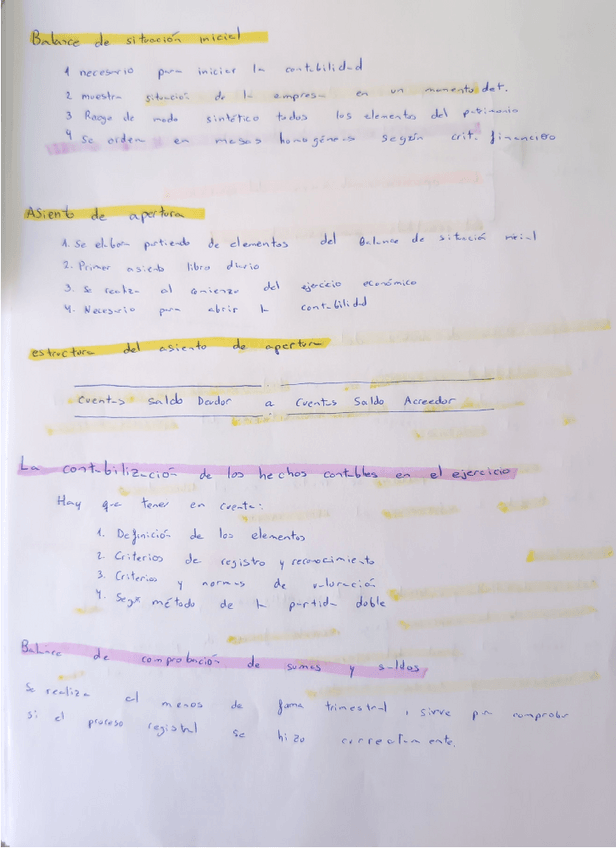 Balance de situación inicial
1 necesario para iniciar la contabilidad
2 muestra situación de la empresa en un momento det.
3 Recoge de modo sintético todos los elementos del patrimonio
4 Se orden en masas homogéneas según crit. financiero
Asiento de apertura
1. Se elabora partiendo de elementos del Balance de situación inicial
2. Primer asiento libro diario
3. Se realiza al comienzo del ejercicio económico
4. Necesario para abrir la contabilidad
estructura del asiento de apertura
Cuentas Saldo Deudor a Cuentas Saldo Acreedor
La contabilización de los hechos contables en el ejercicio
Hay que tener en cuenta:
1. Definición de los elementos
2. Criterios de registro y reconocimiento
3. Criterios y normas de valoración
4. Según método de la partida doble
Balance de comprobación de sumas y saldos
Se realiza al menos de forma trimestral, sirve para comprobar
si el proceso registral se hizo correctamente.